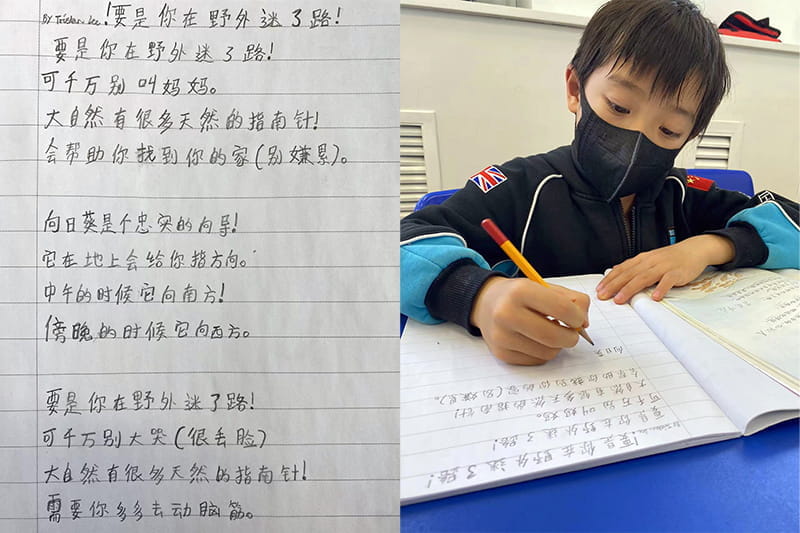 BY Tristan. Lee !要是你在野外迷了路!
要是你在野外迷了路!
可千万别叫妈妈。
大自然有很多天然的指南针!
会帮助你找到你的家(别嫌累)。
向日葵是个忠实的向导!
它在地上会给你指方向。
中午的时候它向南方!
傍晚的时候它向西方。
要是你在野外迷了路!
可千万别大哭(很丢脸)
大自然有很多天然的指南针!
需要你多多去动脑筋。
!要是你在野外迷了路!
要是你在野外迷了路!
可千万别叫妈妈。
大自然有很多天然的指南针!
会帮助你找到你的家(别嫌累)。
向日